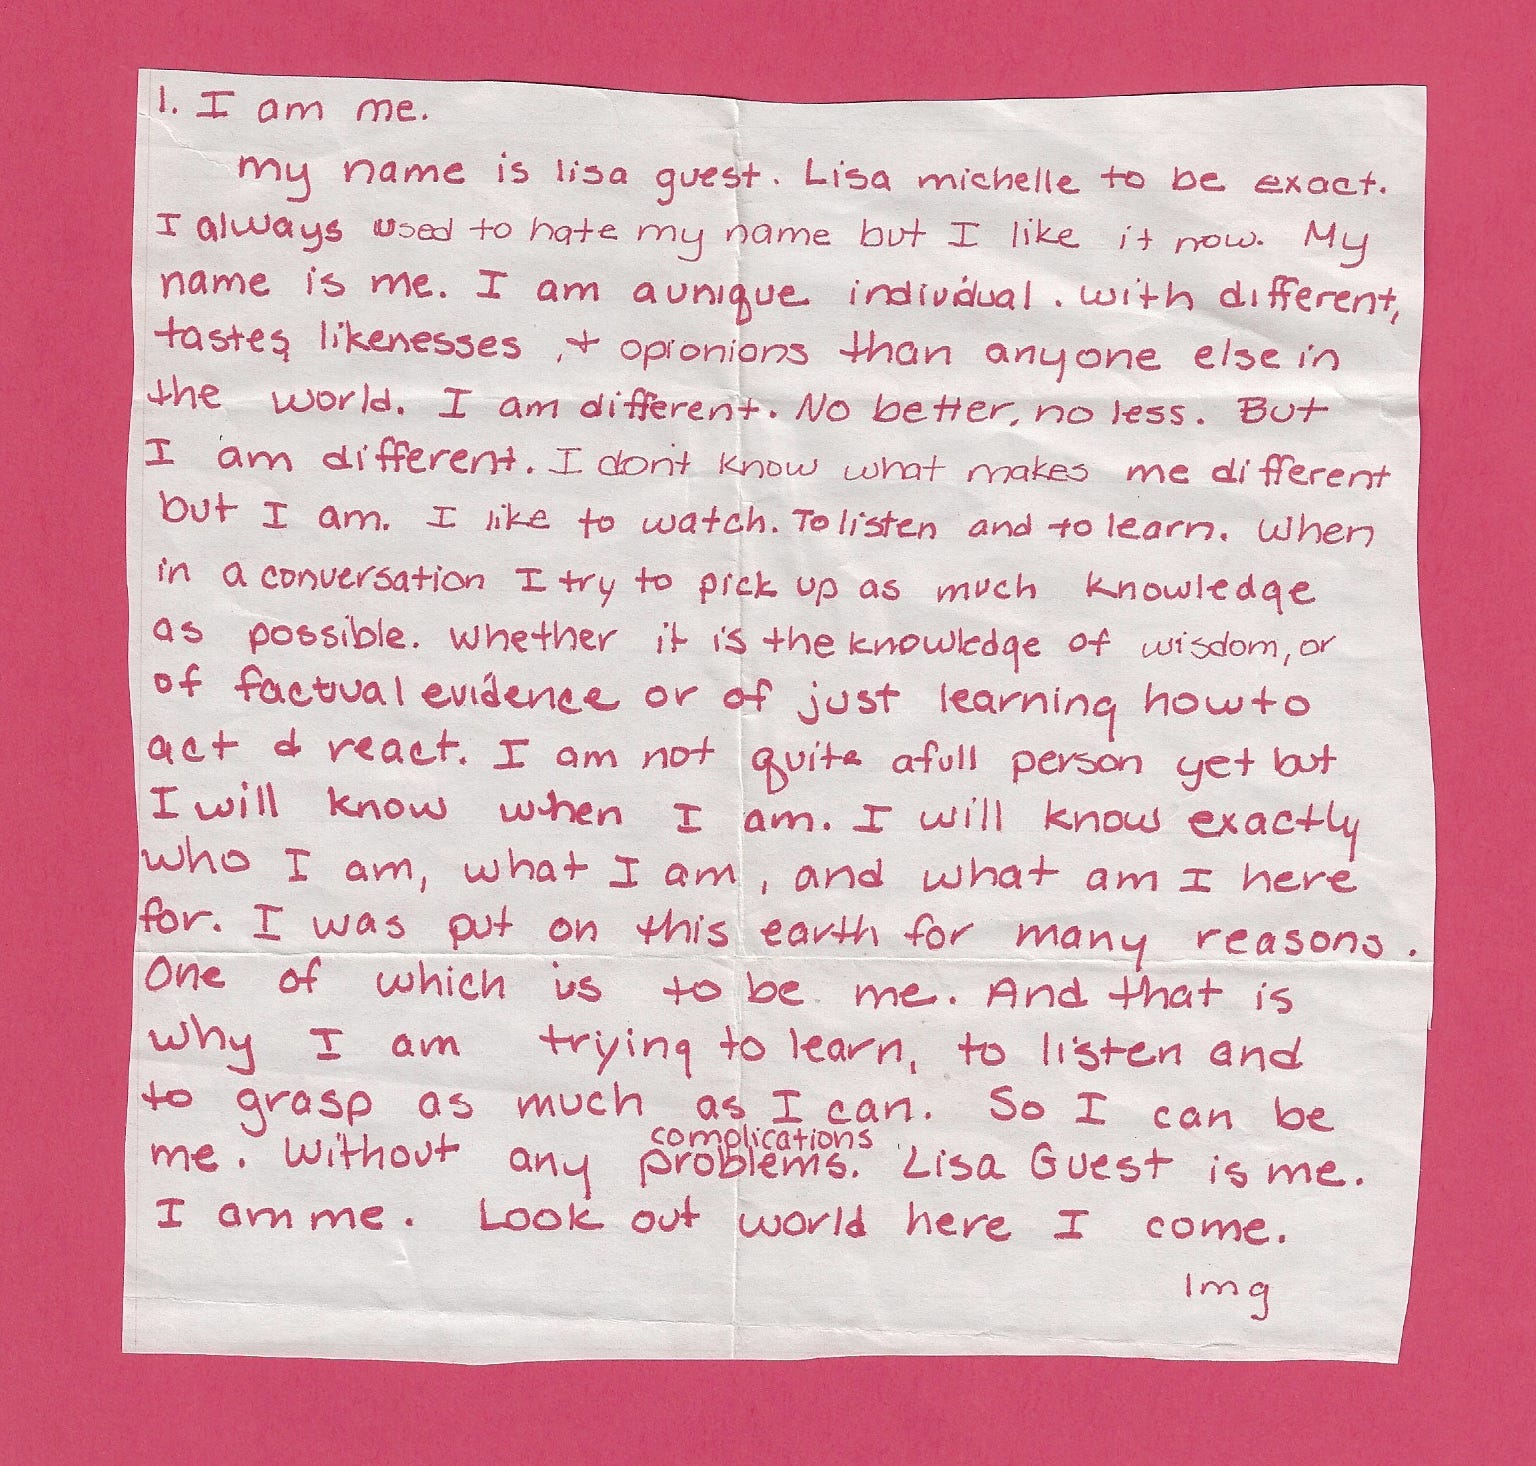 1. I am me.
my name is lisa guest. Lisa michelle to be exact.
I always used to hate my name but I like it now. My
name is me. I am a unique individual. with different,
tastes, likenesses, + opionions than anyone else in
the world. I am different. No better, no less. But
I am different. I don't know what makes me different
but I am. I like to watch. To listen and to learn. When
in a conversation I try to pick up as much knowledge
as possible. whether it is the knowledge of wisdom, or
of factual evidence or of just learning how to
act & react. I am not quite a full person yet but
I will know when I am. I will know exactly
who I am, what I am, and what am I here
for. I was put on this earth for many reasons.
One of which is to be me. And that is
why I am trying to learn, to listen and
to grasp as much as I can. So I can be
complications
me. Without any problems. Lisa Guest is me.
I am me. Look out world here I come.
lmg